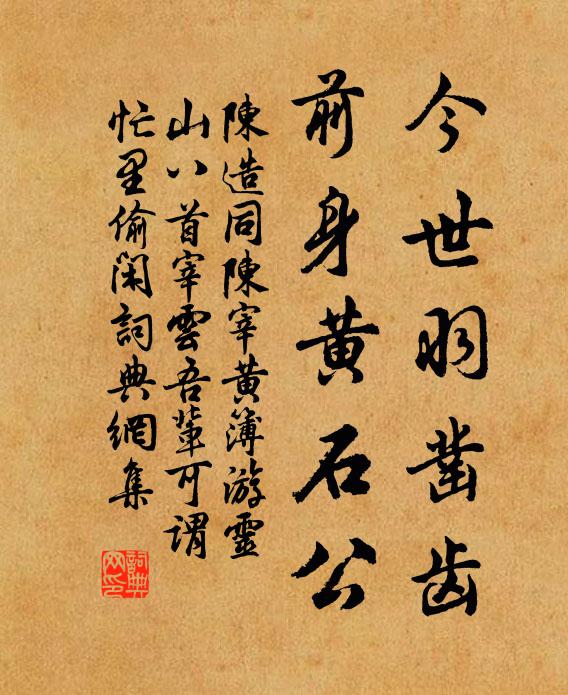 今世羽凿齿
前身黄石公
陳造同陳宰黄簿游靈
山八首宰雲吾輩可謂
忙里偷閑詞典網集
詞典网印